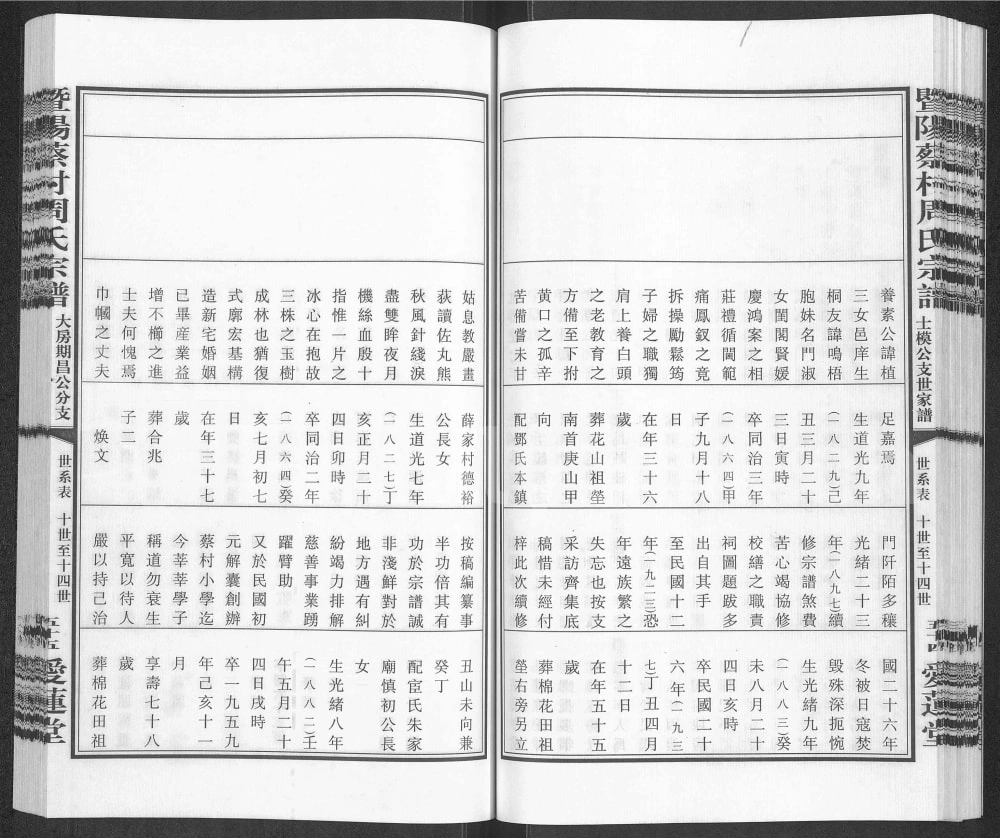 暨陽蔡村周氏宗譜
士模公支世家譜
世系表
十世至十四世
五十四
愛蓮堂
養素公諱植
三女邑庠生
桐友諱鳴梧
胞妹名門淑
女閨閣賢媛
慶鴻案之相
莊禮循閫範
痛鳳釵之竟
拆操勵鬆筠
子婦之職獨
肩上養白頭
之老教育之
方備至下拊
黄口之孤辛
苦備嘗未甘
足嘉焉
生道光九年
(一八二九)己
丑三月二十
三日寅時
卒同治三年
(一八六四)甲
子九月十八
日
在年三十六
歲
葬花山祖塋
南首庚山甲
向
配鄧氏本鎮
門阡陌多穰
光緒二十三
年(一八九七)續
修宗譜煞費
苦心竭協修
校繕之職責
祠圖題跋多
出自其手
至民國十二
年(一九二三)恐
年遠族繁之
失忘也按支
采訪齊集底
稿惜未經付
梓此次續修
國二十六年
冬被日寇焚
毀殊深扼惋
生光緒九年
(一八八三)癸
未八月二十
四日亥時
卒民國二十
六年(一九三
七)丁丑四月
十二日
在年五十五
歲
葬棉花田祖
塋右旁另立
姑息教嚴畫
荻讀佐丸熊
秋風針綫淚
盡雙眸夜月
機絲血殷十
指惟一片之
冰心在抱故
三株之玉樹
成林也猶復
式廓宏基構
造新宅婚姻
已畢産業益
增不櫛之進
士夫何愧焉
巾幗之丈夫
薛家村德裕
公長女
生道光七年
(一八二七)丁
亥正月二十
四日卯時
卒同治二年
(一八六四)癸
亥七月初七
日
在年三十七
歲
葬合兆
子二
焕文
按稿編纂事
半功倍其有
功於宗譜誠
非淺鮮對於
地方遇有糾
紛竭力排解
慈善事業踴
躍臂助
又於民國初
元解囊創辦
蔡村小學迄
今莘莘學子
稱道勿衰生
平寬以待人
嚴以持己治
丑山未向兼
癸丁
配宦氏朱家
廟慎初公長
女
生光緒八年
(一八八二)壬
午五月二十
四日戌時
卒一九五九
年己亥十一
月
享壽七十八
歲
葬棉花田祖
暨陽蔡村周氏宗譜
大房期昌公分支
世系表
十世至十四世
五十五
愛蓮堂